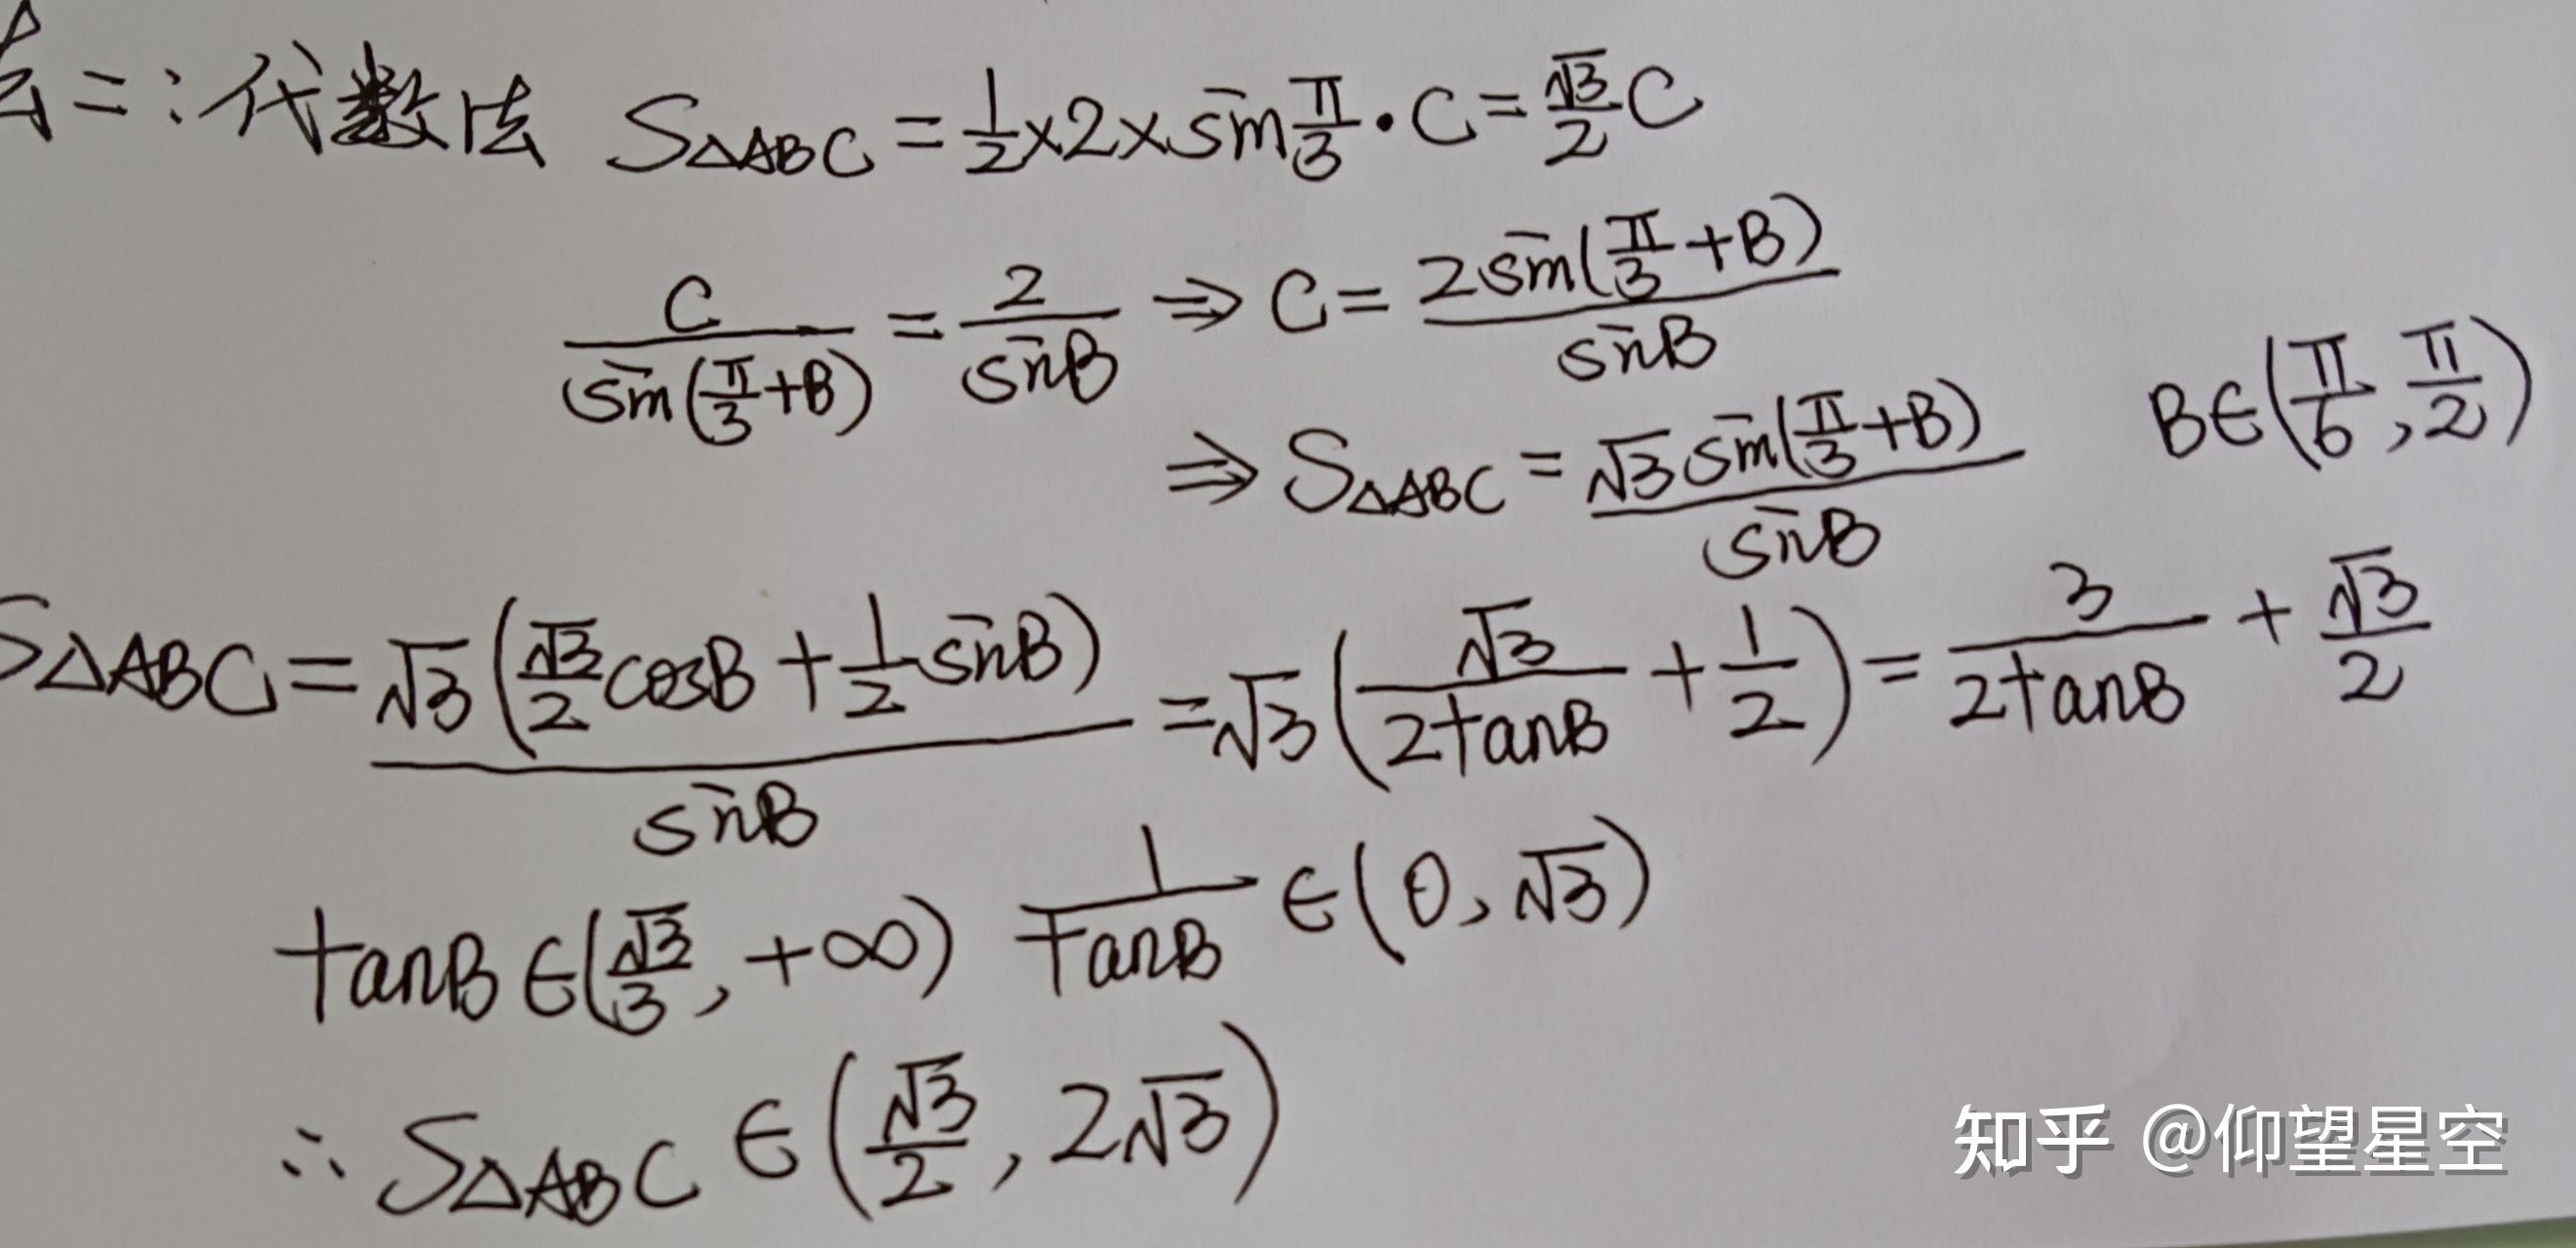 法二:代数法 S△ABC = 1/2 × 2 × sin π/3 · C = √3/2 C
C/sin(π/3+B) = 2/sinB ⇒ C = 2sin(π/3+B)/sinB
⇒ S△ABC = √3sin(π/3+B)/sinB B∈(π/6, π/2)
S△ABC = √3(√3/2 cosB + 1/2 sinB)/sinB = √3(√3/2tanB + 1/2) = 3/2tanB + √3/2
tanB∈(√3/3, +∞) 1/tanB ∈(0, √3)
∴ S△ABC ∈(√3/2, 2√3)
知乎 @仰望星空